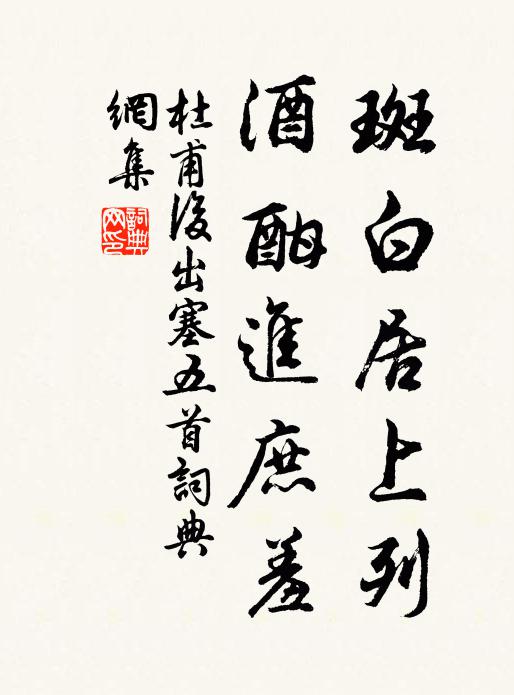 斑白居上列
酒酣進庶羞
杜甫後出塞五首詞典
網集
詞典
網印